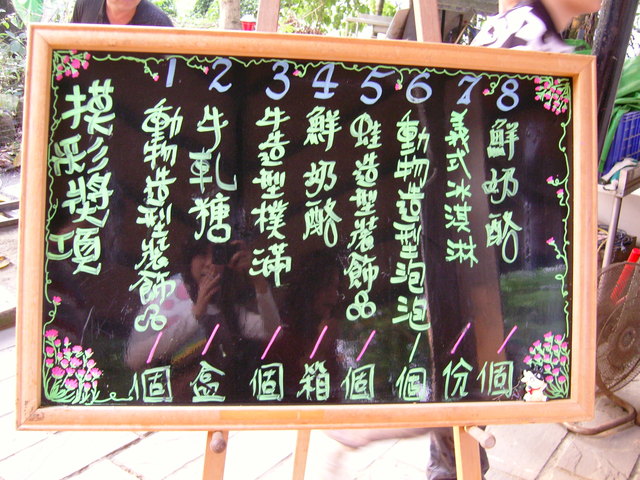 摸彩獎項
1 動物造型裝飾品 / 個
2 牛軋糖 / 盒
3 牛造型撲滿 / 個
4 鮮奶酪 / 箱
5 蛙造型裝飾品 / 個
6 動物造型泡泡 / 個
7 義式冰淇淋 / 份
8 鮮奶酪 / 個